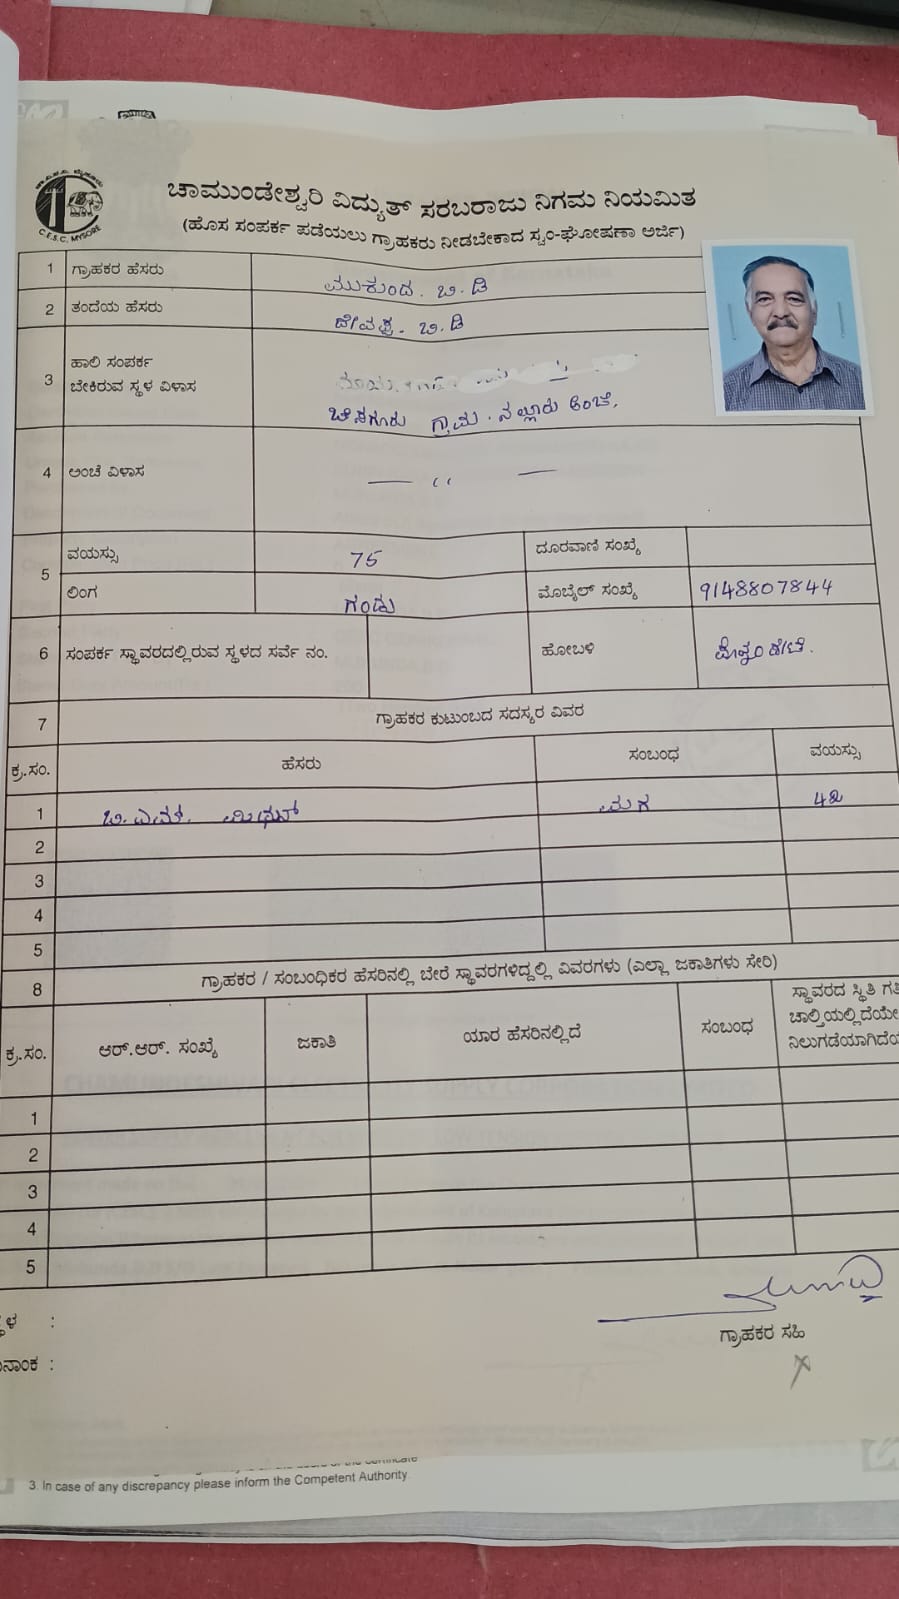 ಚಾಮುಂಡೇಶ್ವರಿ ವಿದ್ಯುತ್ ಸರಬರಾಜು ನಿಗಮ ನಿಯಮಿತ
(ಹೊಸ ಸಂಪರ್ಕ ಪಡೆಯಲು ಗ್ರಾಹಕರು ನೀಡಬೇಕಾದ ಸ್ವಂ-ಘೋಷಣಾ ಅರ್ಜಿ)
C.E.S.C. MYSORE
1 ಗ್ರಾಹಕರ ಹೆಸರು ಮುಕುಂದ. ಬಿ. ಡಿ
2 ತಂದೆಯ ಹೆಸರು ದೇವಪ್ಪ. ಬಿ. ಡಿ
3 ಹಾಲಿ ಸಂಪರ್ಕ
ಬೇಕಿರುವ ಸ್ಥಳ ವಿಳಾಸ
ಗ್ರಾಮ. ನಲ್ಲೂರು ಅಂಚೆ,
4 ಅಂಚೆ ವಿಳಾಸ — ,, —
5 ವಯಸ್ಸು 75 ದೂರವಾಣಿ ಸಂಖ್ಯೆ
ಲಿಂಗ ಗಂಡು ಮೊಬೈಲ್ ಸಂಖ್ಯೆ 9148807844
6 ಸಂಪರ್ಕ ಸ್ಥಾವರದಲ್ಲಿರುವ ಸ್ಥಳದ ಸರ್ವೆ ನಂ. ಹೋಬಳಿ ಪೊನ್ನಂಪೇಟೆ.
7 ಗ್ರಾಹಕರ ಕುಟುಂಬದ ಸದಸ್ಯರ ವಿವರ
ಕ್ರ.ಸಂ. ಹೆಸರು ಸಂಬಂಧ ವಯಸ್ಸು
1 ಬಿ. ಎಮ್. ಮಿಥುನ್ ಮಗ 42
2
3
4
5
8 ಗ್ರಾಹಕರ / ಸಂಬಂಧಿಕರ ಹೆಸರಿನಲ್ಲಿ ಬೇರೆ ಸ್ಥಾವರಗಳಿದ್ದಲ್ಲಿ ವಿವರಗಳು (ಎಲ್ಲಾ ಜಕಾತಿಗಳು ಸೇರಿ)
ಕ್ರ.ಸಂ. ಆರ್.ಆರ್. ಸಂಖ್ಯೆ ಜಕಾತಿ ಯಾರ ಹೆಸರಿನಲ್ಲಿದೆ ಸಂಬಂಧ ಸ್ಥಾವರದ ಸ್ಥಿತಿ ಗತಿ
ಚಾಲ್ತಿಯಲ್ಲಿದೆಯೇ
ನಿಲುಗಡೆಯಾಗಿದೆಯ
1
2
3
4
5
ಗ್ರಾಹಕರ ಸಹಿ
3. In case of any discrepancy please inform the Competent Authority